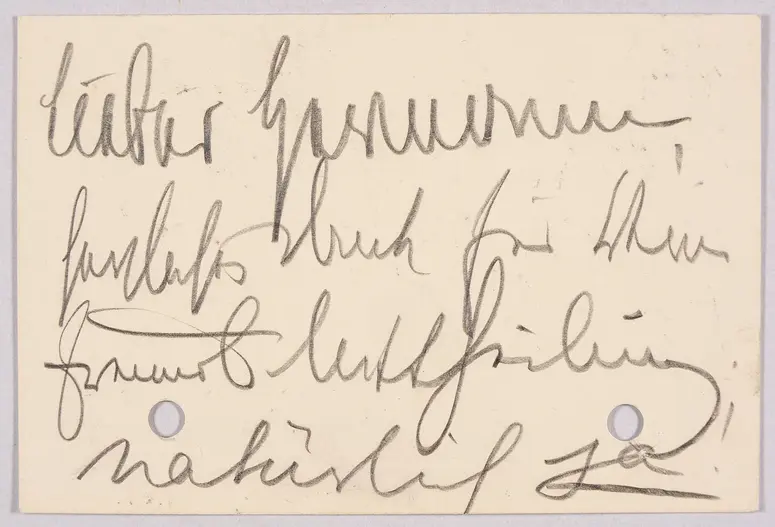 Lieber Hermann,
herzlichst Dank für Deine
freundl Mittheilung.
natürlich ja!